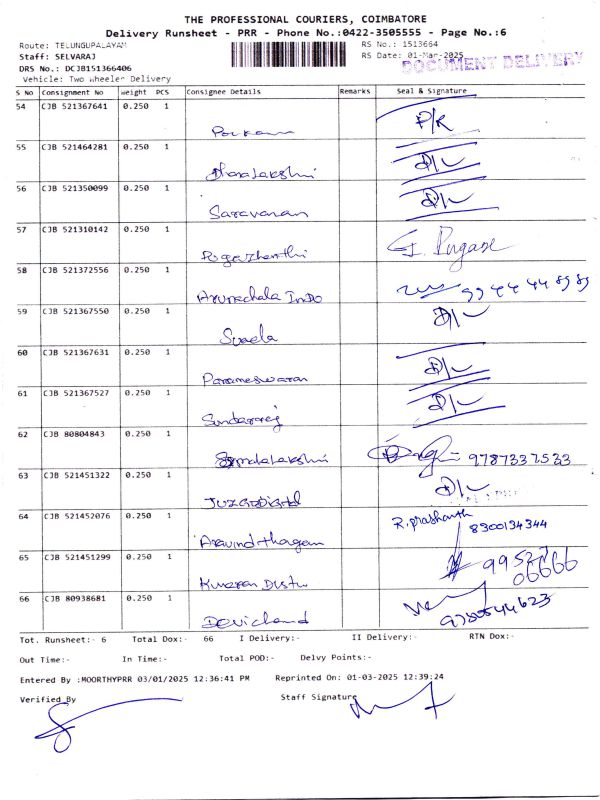 THE PROFESSIONAL COURIERS, COIMBATORE
Delivery Runsheet - PRR - Phone No.:0422-3505555 - Page No.:6
Route: TELUNGUPALAYAM RS No.: 1513664
Staff: SELVARAJ RS Date: 01-Mar-2025
DOCUMENT DELIVERY
DRS No.: DCJB151366406
Vehicle: Two Wheeler Delivery
S No Consignment No Weight PCS Consignee Details Remarks Seal & Signature
54 CJB 521367641 0.250 1
P/K
55 CJB 521464281 0.250 1
Dhanalakshmi
56 CJB 521350099 0.250 1
Saravanan
57 CJB 521310142 0.250 1
Pogazhenthi
58 CJB 521372556 0.250 1
Arunachala Indo 99 44 44 89 89
59 CJB 521367550 0.250 1
60 CJB 521367631 0.250 1
Parameswaran
61 CJB 521367527 0.250 1
Sundararaj
62 CJB 80804843 0.250 1
9787337533
63 CJB 521451322 0.250 1
64 CJB 521452076 0.250 1 R. prashanth
Aravind thagam 8300134344
65 CJB 521451299 0.250 1
Kumaran Distu 99527 06666
66 CJB 80938681 0.250 1
Devichand
Tot. Runsheet:- 6 Total Dox:- 66 I Delivery:- II Delivery:- RTN Dox:-
Out Time:- In Time:- Total POD:- Delvy Points:-
Entered By :MOORTHYPRR 03/01/2025 12:36:41 PM Reprinted On: 01-03-2025 12:39:24
Verified By Staff Signature